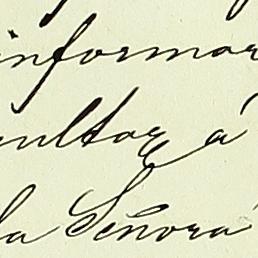 informar
ultar á
la Señora